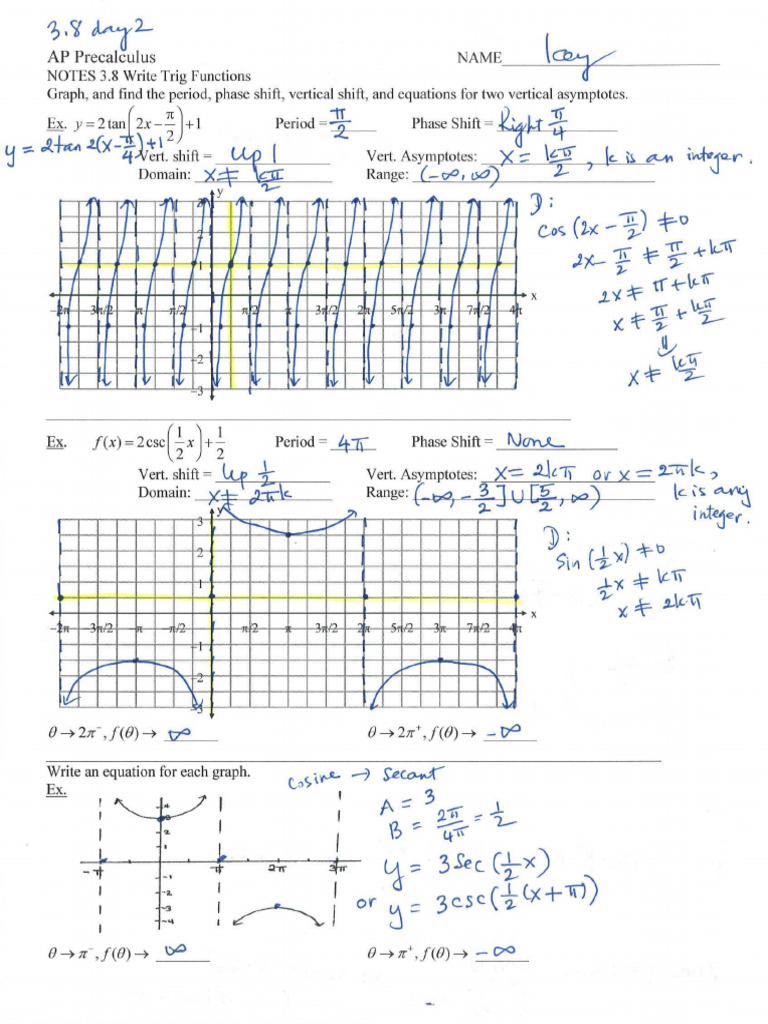 3.8 day 2
AP Precalculus NAME key
NOTES 3.8 Write Trig Functions
Graph, and find the period, phase shift, vertical shift, and equations for two vertical asymptotes.
Ex. y = 2 tan(2x − π/2) + 1 Period = π/2 Phase Shift = Right π/4
y = 2tan 2(x − π/4) + 1
Vert. shift = up 1 Vert. Asymptotes: x = kπ/2, k is an integer.
Domain: x ≠ kπ/2 Range: (−∞, ∞)
D:
cos(2x − π/2) ≠ 0
2x − π/2 ≠ π/2 + kπ
2x ≠ π + kπ
x ≠ π/2 + kπ/2
⇓
x ≠ kπ/2
y
3
2
1
−2π 3π/2 −π π/2 π/2 π 3π/2 2π 5π/2 3π 7π/2 4π x
−1
−2
−3
Ex. f(x) = 2 csc(1/2 x) + 1/2 Period = 4π Phase Shift = None
Vert. shift = Up 1/2 Vert. Asymptotes: x = 2kπ or x = 2πk,
Domain: x ≠ 2πk Range: (−∞, −3/2] ∪ [5/2, ∞) k is any integer.
D:
sin(1/2 x) ≠ 0
1/2 x ≠ kπ
x ≠ 2kπ
y
3
2
1
−2π −3π/2 −π −π/2 π/2 π 3π/2 2π 5π/2 3π 7π/2 4π x
−1
−2
−3
θ → 2π⁻, f(θ) → ∞ θ → 2π⁺, f(θ) → −∞
Write an equation for each graph.
Ex.
cosine → secant
A = 3
B = 2π/4π = 1/2
y = 3 sec(1/2 x)
or y = 3 csc(1/2 (x + π))
4
3
2
1
−π π 2π 3π
−1
−2
−3
−4
θ → π⁻, f(θ) → ∞ θ → π⁺, f(θ) → −∞